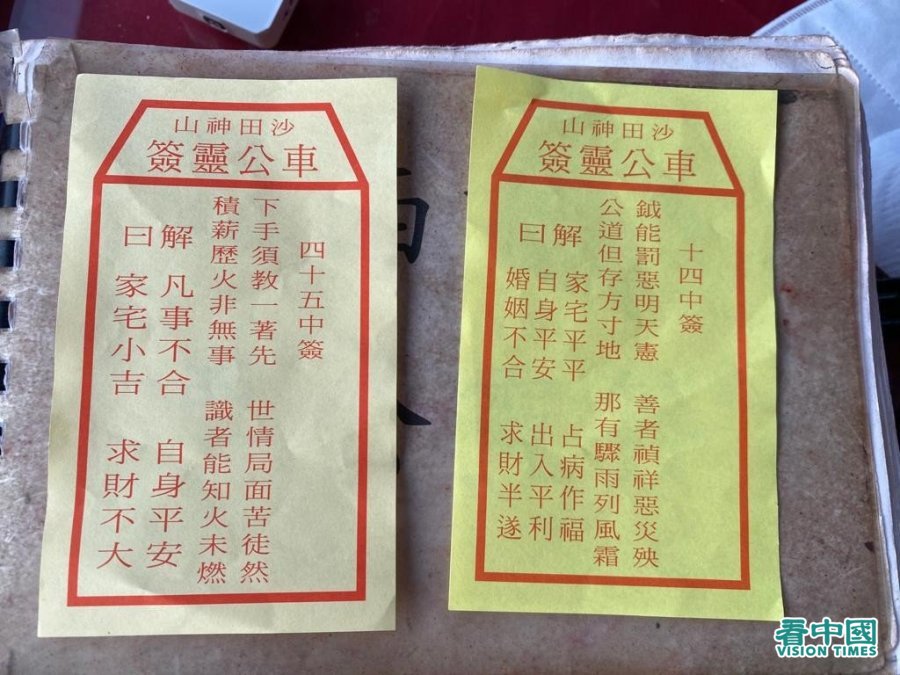 沙田神山
車公靈簽
四十五中簽
下手須教一著先 世情局面苦徒然
積薪歷火非無事 識者能知火未燃
解曰
凡事不合 自身平安
家宅小吉 求財不大
沙田神山
車公靈簽
十四中簽
鉞能罰惡明天憲 善者禎祥惡災殃
公道但存方寸地 那有驟雨列風霜
解曰
家宅平平 占病作福
自身平安 出入平利
婚姻不合 求財半遂
看中國
VISION TIMES